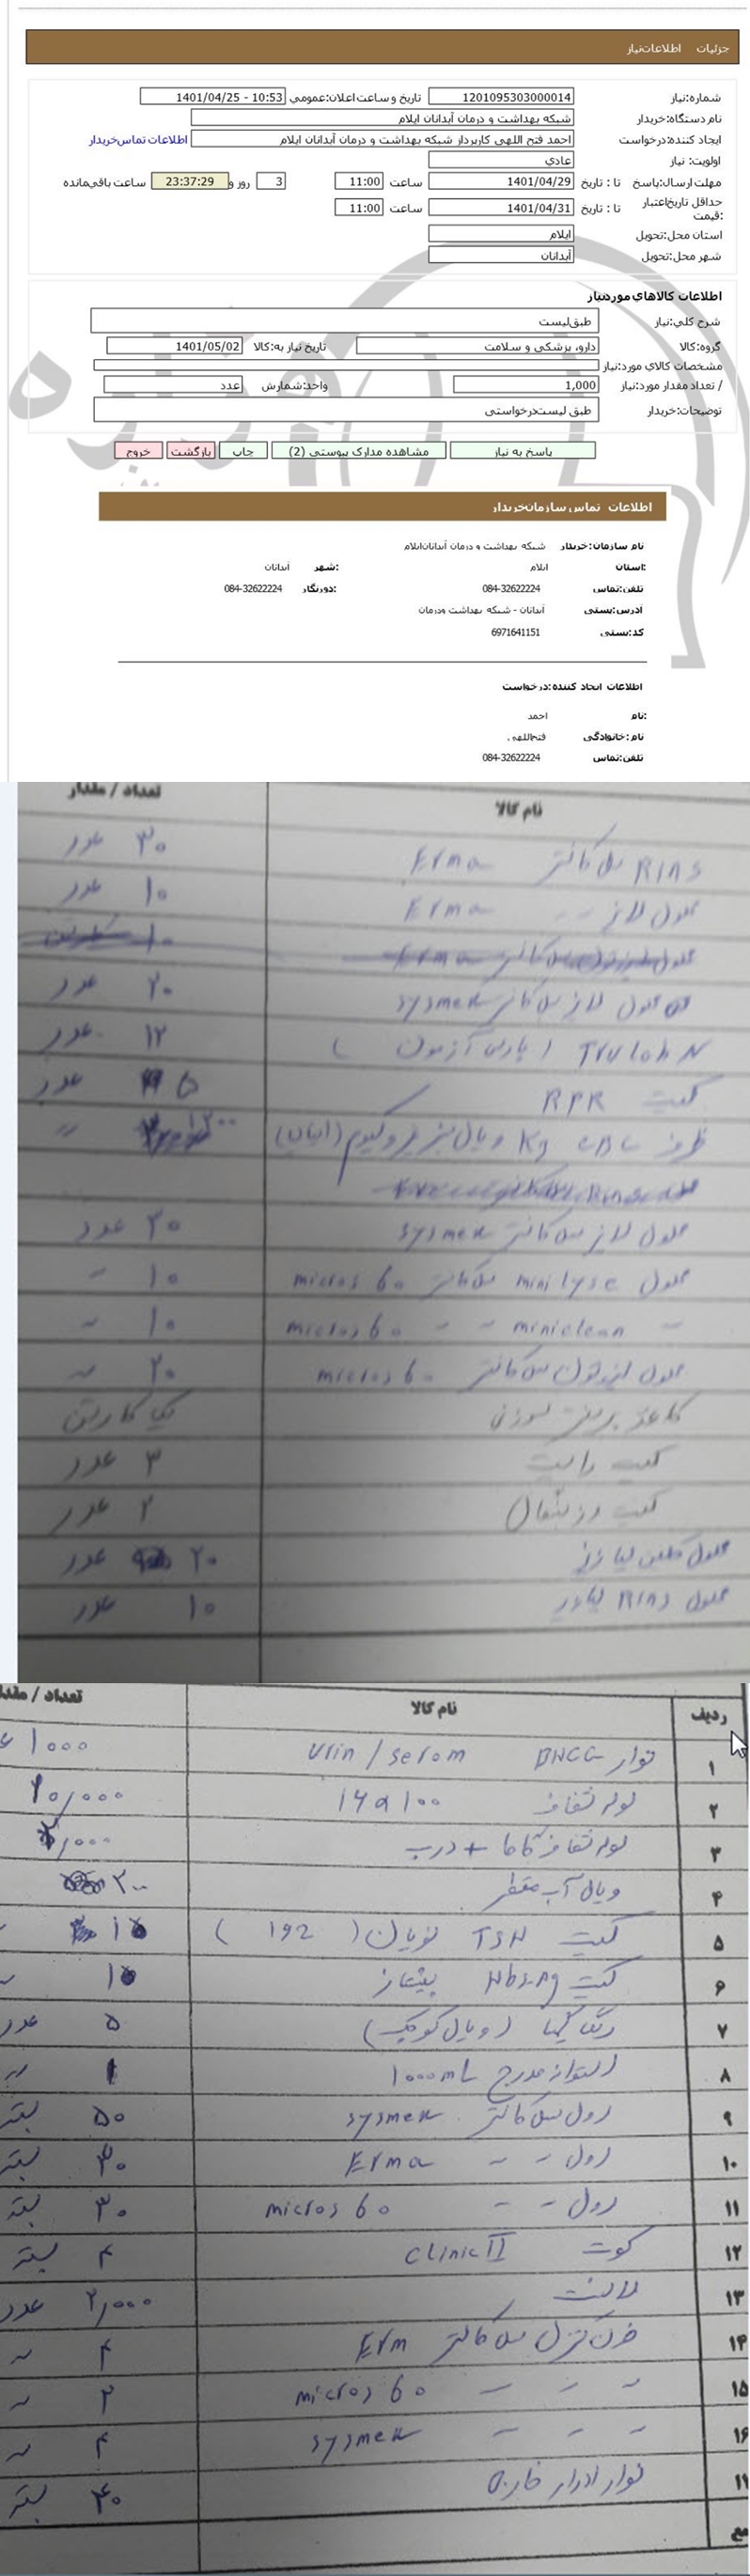 جزئیات اطلاعات نیاز
شماره نیاز: 1201095303000014 تاریخ و ساعت اعلان عمومی: 1401/04/25 - 10:53
نام دستگاه خریدار: شبکه بهداشت و درمان آبدانان ایلام
ایجاد کننده درخواست: احمد فتح اللهی کاربرداز شبکه بهداشت و درمان آبدانان ایلام اطلاعات تماس خریدار
اولویت نیاز: عادی
مهلت ارسال پاسخ: تا تاریخ: 1401/04/29 ساعت 11:00 3 روز و 23:37:29 ساعت باقی مانده
حداقل تاریخ اعتبار قیمت: تا تاریخ: 1401/04/31 ساعت 11:00
استان محل تحویل: ایلام
شهر محل تحویل: آبدانان
اطلاعات کالاهای مورد نیاز
شرح کلی نیاز: طبق لیست
گروه کالا: دارو، پزشکی و سلامت تاریخ نیاز به کالا: 1401/05/02
مشخصات کالای مورد نیاز:
تعداد مقدار مورد نیاز / 1,000 واحد شمارش: عدد
توضیحات خریدار: طبق لیست درخواستی
پاسخ به نیاز مشاهده مدارک پیوستی (2) چاپ بازگشت خروج
اطلاعات تماس سازمان خریدار
نام سازمان خریدار: شبکه بهداشت و درمان آبدانان ایلام
استان: ایلام شهر: آبدانان
تلفن تماس: 084-32622224 دورنگار: 084-32622224
آدرس پستی: آبدانان - شبکه بهداشت ودرمان
کد پستی: 6971641151
اطلاعات ایجاد کننده درخواست:
نام: احمد
نام خانوادگی: فتح اللهی
تلفن تماس: 084-32622224
نام کالا تعداد / مقدار
Rins سل کانتر Erma ۳۰ عدد
محلول لایز Erma ۱۰ عدد
محلول لایز سل کانتر sysmex ۲۰ عدد
(پارس آزمون) ۱۲ عدد
کیت RPR ۵ عدد
ظرف CBC
محلول لایز سل کانتر sysmex ۳۰ عدد
محلول minilyse سل کانتر micros 60 ۱۰ "
" miniclean " " micros 60 ۱۰ "
محلول ایزوتون سل کانتر micros 60 ۲۰ "
کاغذ پرینتر سوزنی یک کارتن
کیت رایت ۳ عدد
کیت ۲ عدد
محلول ۲۰ عدد
محلول Rins ۱۰ عدد
ردیف نام کالا تعداد / مقدار
۱ نوار BHCG Urin / serom ۱۰۰۰
۲ لوله شفاف 16*100 ۲۰,۰۰۰
۳ لوله شفاف + درب
۴ ویال آب مقطر ۲۰۰
۵ کیت TSH (192) ۱۰
۶ کیت Hbs-Ag پیشتاز ۱۰
۷ رنگ گیمسا (ویال کوچک) ۵ عدد
۸ استوانه مدرج 1000mL ۱ "
۹ رول سل کانتر sysmex ۵۰ بسته
۱۰ رول " " Erma ۳۰ بسته
۱۱ رول " " micros 60 ۳۰ بسته
۱۲ کووت Clinic II ۴ بسته
۱۳ لانست ۲,۰۰۰ عدد
۱۴ خون کنترل سل کانتر Erm ۴ "
۱۵ " " " micros 60 ۲ "
۱۶ " " " sysmex ۴ "
۱۷ نوار ادرار ۴۰ بسته